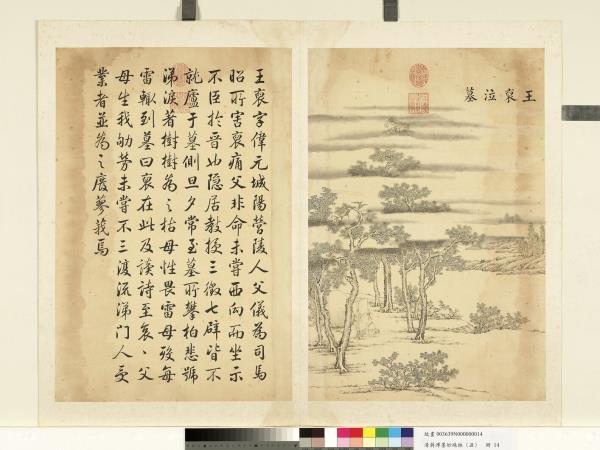 王裒泣墓
王裒字偉元城陽營陵人父儀為司馬
昭所害裒痛父非命未嘗西向而坐示
不臣於晉也隱居教授三徵七辟皆不
就廬于墓側旦夕常至墓所攀柏悲號
涕淚著樹樹為之枯母性畏雷母歿每
雷輒到墓曰裒在此及讀詩至哀、父
母生我劬勞未嘗不三復流涕門人受
業者並為之廢蓼莪焉
故畫 003639N000000014
墨妙珠林（丑） 冊 14